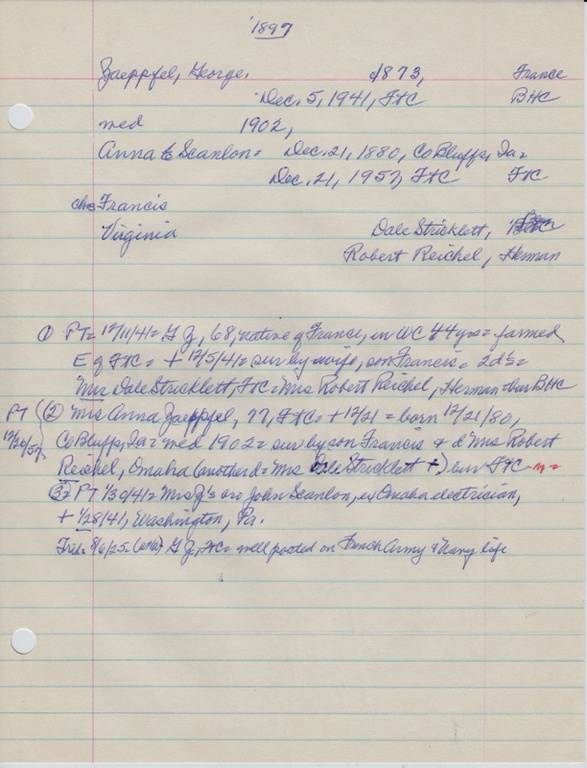 1897
Zaeppfel, George. d1873, France
Dec. 5, 1941, FtC BHC
med 1902,
Anna Scanlon = Dec. 21, 1880, Co Bluffs, Ia =
Dec. 21, 1957, FtC FtC
ch= Francis
Virginia Dale Stricklett,
Robert Reichel, Herman
① PT= 12/11/41= G Z, 68, native of France, in WC 44 yrs= farmed
E of FtC= + 12/5/41= sur by wife, son Francis= 2 d's=
Mrs Dale Stricklett, FtC= Mrs Robert Reichel, Herman= bur BHC
PT 12/26/57 ② Mrs Anna Zaeppfel, 77, FtC= + 12/21 = born 12/21/80,
Co Bluffs, Ia= med 1902= sur by son Francis & d Mrs Robert
Reichel, Omaha (another d= Mrs Dale Stricklett +) bur FtC
③ PT 1/30/41= Mrs Z's bro John Scanlon, ex Omaha electrician,
+ 1/28/41, Washington, Pa.
Trib= 8/6/25= G Z, FtC= well posted on French Army & Navy life